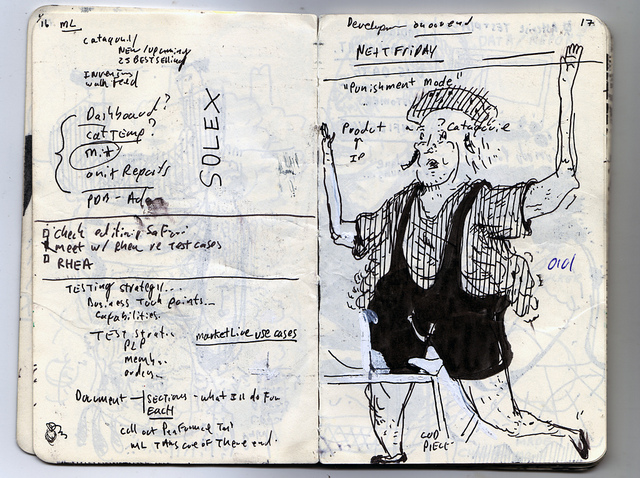 16 ML
CATALOG/
NEW/UPCOMING
25 BEST SELLING
INVENTORY
WALK FEED
Dashboard?
CatTemp?
Omit Reports
PDD - Ad
SOLEX
Check editing Safari
Meet w/ Rhea re Test cases
RHEA
TESTING Strategy...
Business Touch points...
Capabilities.
TEST Strat..
MarketLive use cases
PLP
memb...
orders...
Document - SECTIONS - what I'll do for
EACH
call out Performance Test
ML Takes care of There end.
17
NEXT FRIDAY
"Punishment Mode"
Product
IP
COD
PIECE